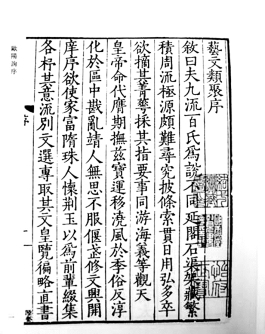 歐陽詢序
藝文類聚序
敘曰夫九流百氏為說不同延閣石渠架藏繁
積周流極源頗難尋究披條索貫日用弘多卒
欲摘其菁華採其指要事同游海義等觀天
皇帝命代膺期撫茲寶運移澆風於季俗反淳
化於區中戡亂靖人無思不服偃武修文興開
庠序欲使家富隋珠人懷荊玉以為前輩綴集
各杼其意流別文選專取其文皇覽徧略直書
序